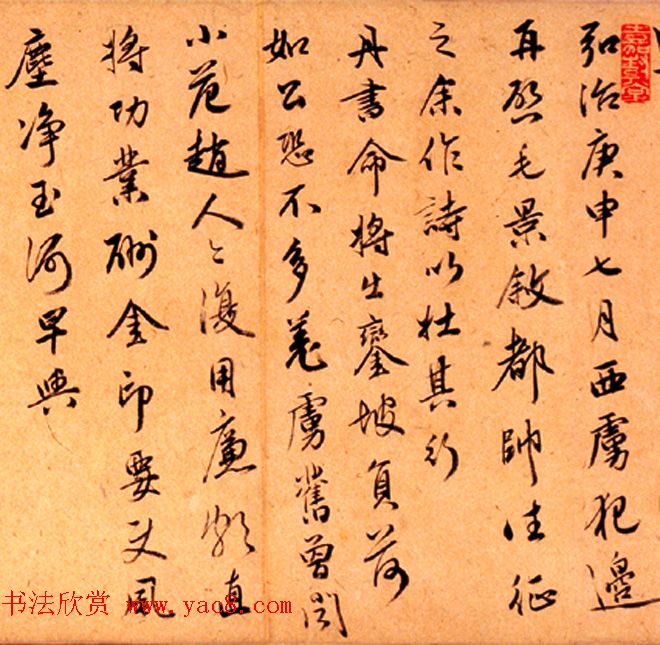 弘治庚申七月西虜犯邊
再啟毛景敘都帥往征
之余作詩以壮其行
丹書命將出鑾坡負荷
如公恐不多羌虜舊曾聞
小范趙人々復用廉頗直
將功業酬金印要使風
塵净玉河早與
书法欣赏 www.yao8.com